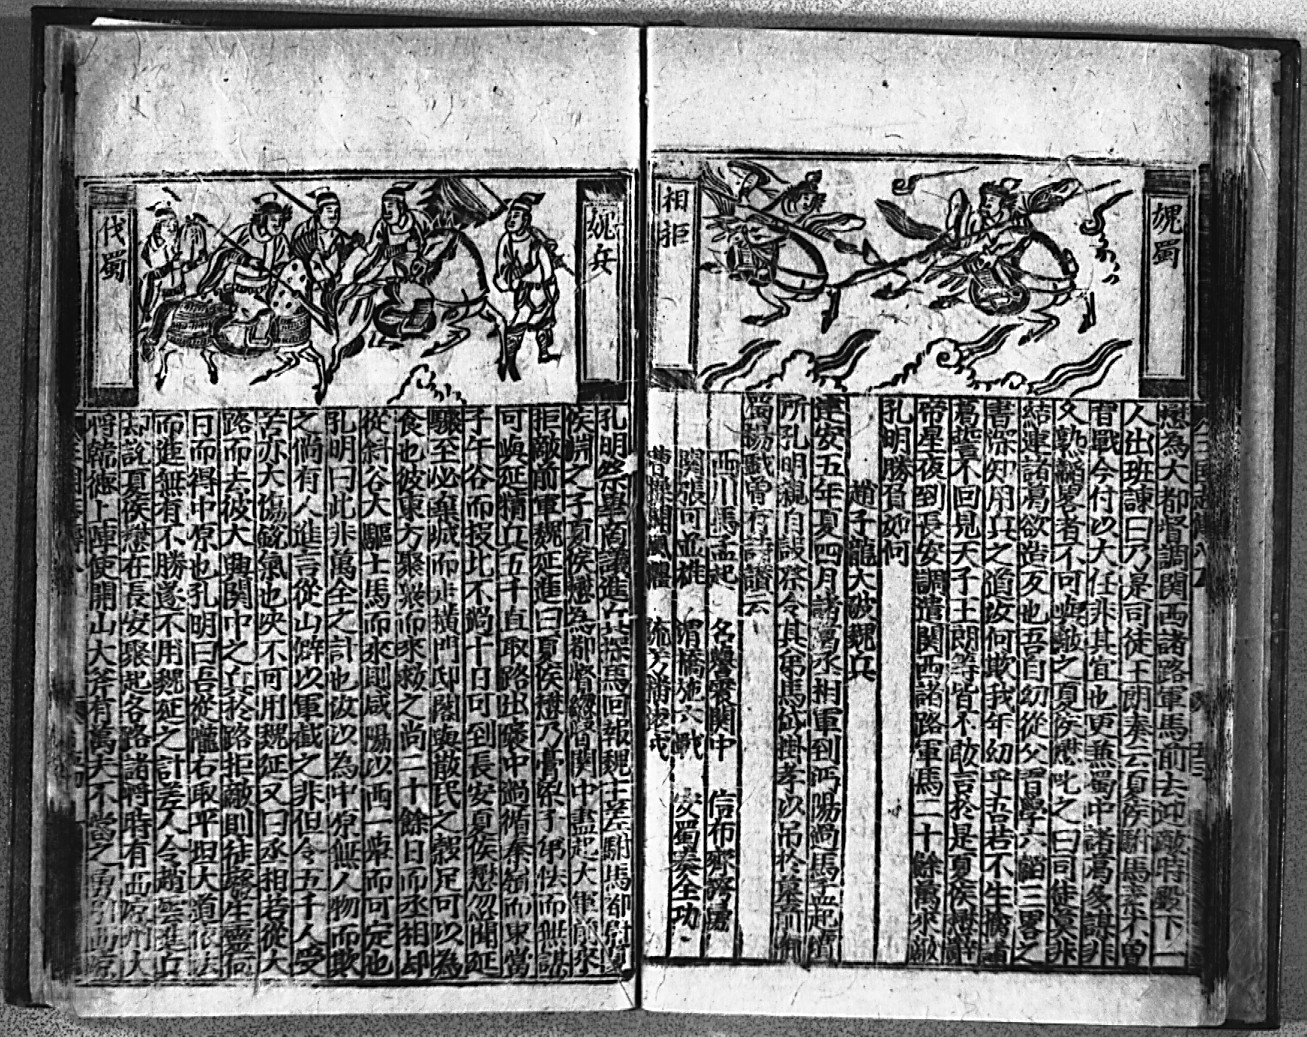 魏蜀
相拒
懋為大都督調関西諸路軍馬前去迎敵時殿下一
人出班諫曰乃是司徒王朗奏云夏侯駙馬素未曾
曾戰今付以大任非其宜也更兼蜀中諸葛多謀非
久熟韜畧者不可與敵之夏侯懋叱之曰司徒莫非
結連諸葛欲造反也吾自幼從父習學六韜三畧之
書深知用兵之道汝何欺我年幼乎吾若不生擒諸
葛誓不回見天子王朗等皆不敢言於是夏侯懋辭
帝星夜到長安調遣関西諸路軍馬二十餘萬來敵
孔明勝負如何
趙子龍大破魏兵
建安五年夏四月諸葛丞相軍到沔陽過馬孟起墳
所孔明親自設祭令其弟馬岱掛孝以吊於墓前
楊戲曽有詩讃云
西川馬孟起 名譽震関中 信布齊誇勇
関張可並雄 渭橋施六戰 安蜀奏全功
曹操聞風膽 流芳播
魏兵
伐蜀
孔明祭畢商議進兵探馬回報魏主差駙馬都尉夏
侯淵之子夏侯懋為都督總督関中盡起大軍前來
拒敵前軍魏延進曰夏侯懋乃膏粱子弟怯而無謀
可與延精兵五千直取路出褒中過循秦嶺而東當
子午谷而投北不過十日可到長安夏侯懋忽聞延
驟至必棄城而走橫門邸閣與散民之穀足可以為
食也彼東方聚衆而來救之尚二十餘日而丞相却
從斜谷大驅士馬而來則咸陽以西一舉而可定也
孔明曰此非萬全之計也汝以為中原無人物而欺
之倘有人進言從山僻以軍截之非但令五千人受
苦亦大傷銳氣也决不可用魏延又曰丞相若從大
路而去彼大興関中之兵於路拒敵則徒廢生靈何
日而得中原也孔明曰吾從隴右取平坦大道依法
而進無有不勝遂不用魏延之計差人令趙雲進兵
却說夏侯懋在長安聚起各路諸將時有西凉州大
將韓德上陣使開山大斧有萬夫不當之勇引西凉